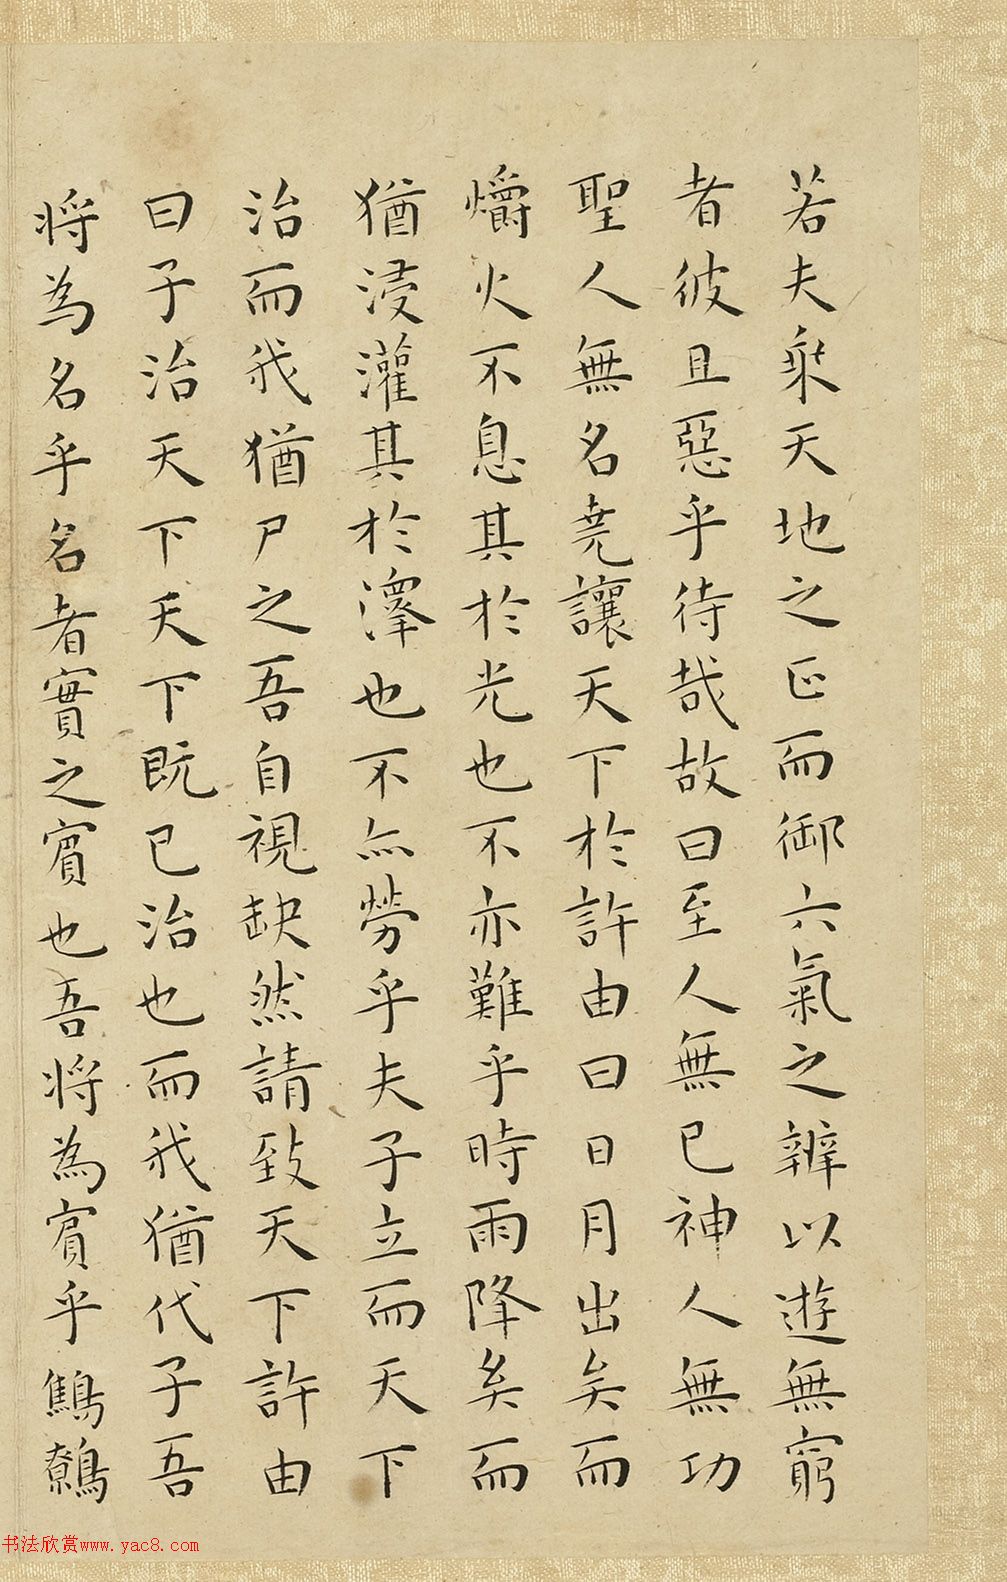 若夫乘天地之正而御六氣之辨以遊無窮
者彼且惡乎待哉故曰至人無已神人無功
聖人無名堯讓天下於許由曰日月出矣而
爝火不息其於光也不亦難乎時雨降矣而
猶浸灌其於澤也不亦勞乎夫子立而天下
治而我猶尸之吾自視缺然請致天下許由
曰子治天下天下既已治也而我猶代子吾
将為名乎名者實之賓也吾将為賓乎鷦鷯
书法欣赏www.yac8.com